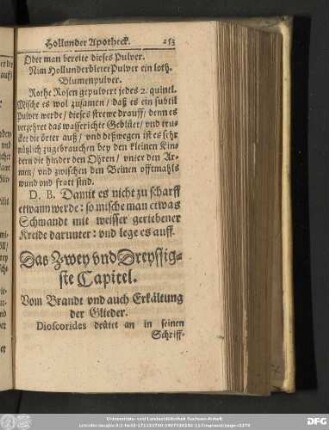 Hollunder Apotheck. 253
Oder man bereite dieses Pulver.
Nim Hollunderbleter Pulver ein loth.
Blumenpulver.
Rothe Rosen gepulvert jedes 2. quintel.
Mische es wol zusamen / daß es ein subtil
Pulver werde / dieses strewe drauff / denn es
verzehret das wasserichte Geblüet / und truc-
ket die örter auß / vnd deßwegen ist es sehr
nützlich zugebrauchen bey den kleinen Kin-
dern die hinder den Ohren / vnter den Ar-
men / vnd zwischen den Beinen offtmahls
wund vnd fratt sind.
D. B. Damit es nicht zu scharff
etwann werde: so mische man etwas
Schmandt mit weisser geriebener
Kreide darunter: vnd lege es auff.
Das Zwey vnd Dreyssig-
ste Capitel.
Vom Brandt vnd auch Erkältung
der Glieder.
Dioscorides deütet an in seinen
Schriff-